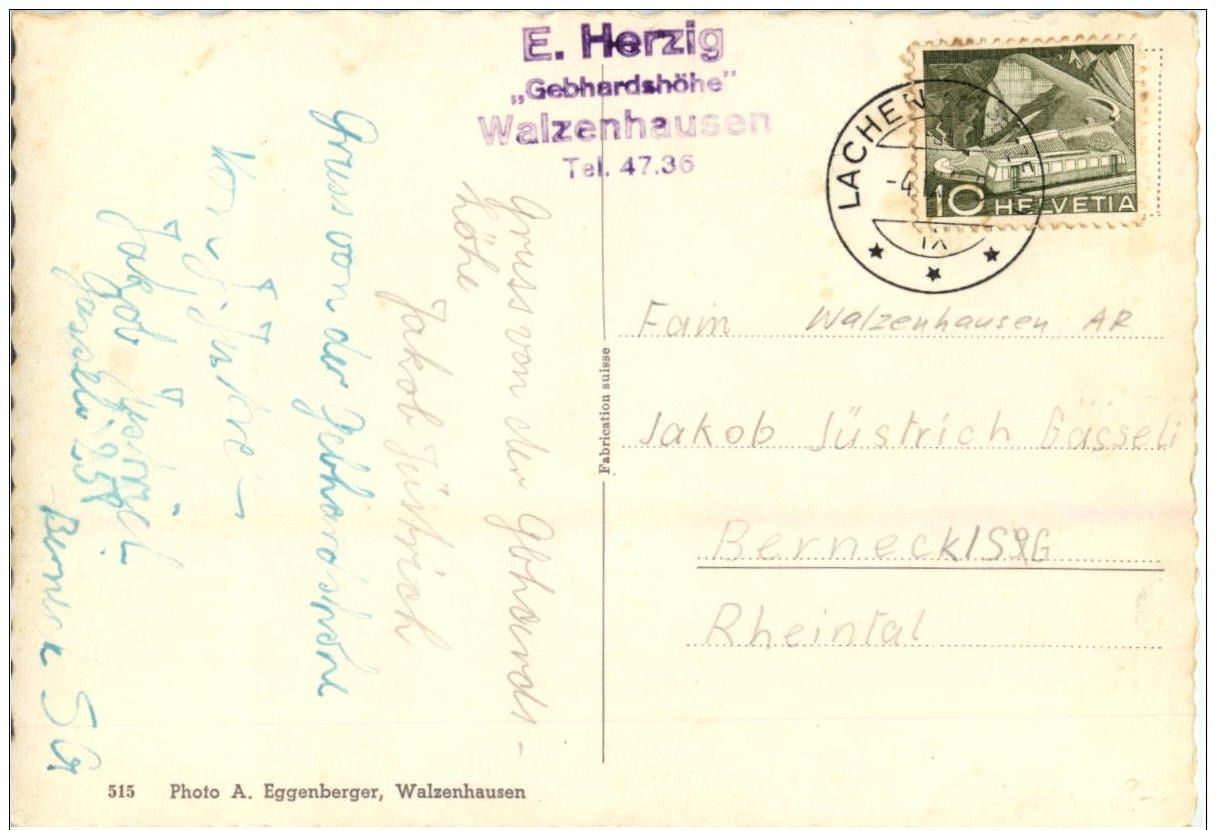 E. Herzig
„Gebhardshöhe"
Walzenhausen
Tel. 47.36
LACHEN
-4.
IX
10 HELVETIA
Gruss von der Gebhardshöhe
von
Jakob
Gässeli 251
Berneck SG
Gruss von der Gbhards-
höhe
Jakob Jüstrich
Fabrication suisse
Fam Walzenhausen AR
Jakob Jüstrich Gässeli
Berneck/SG
Rheintal
515 Photo A. Eggenberger, Walzenhausen